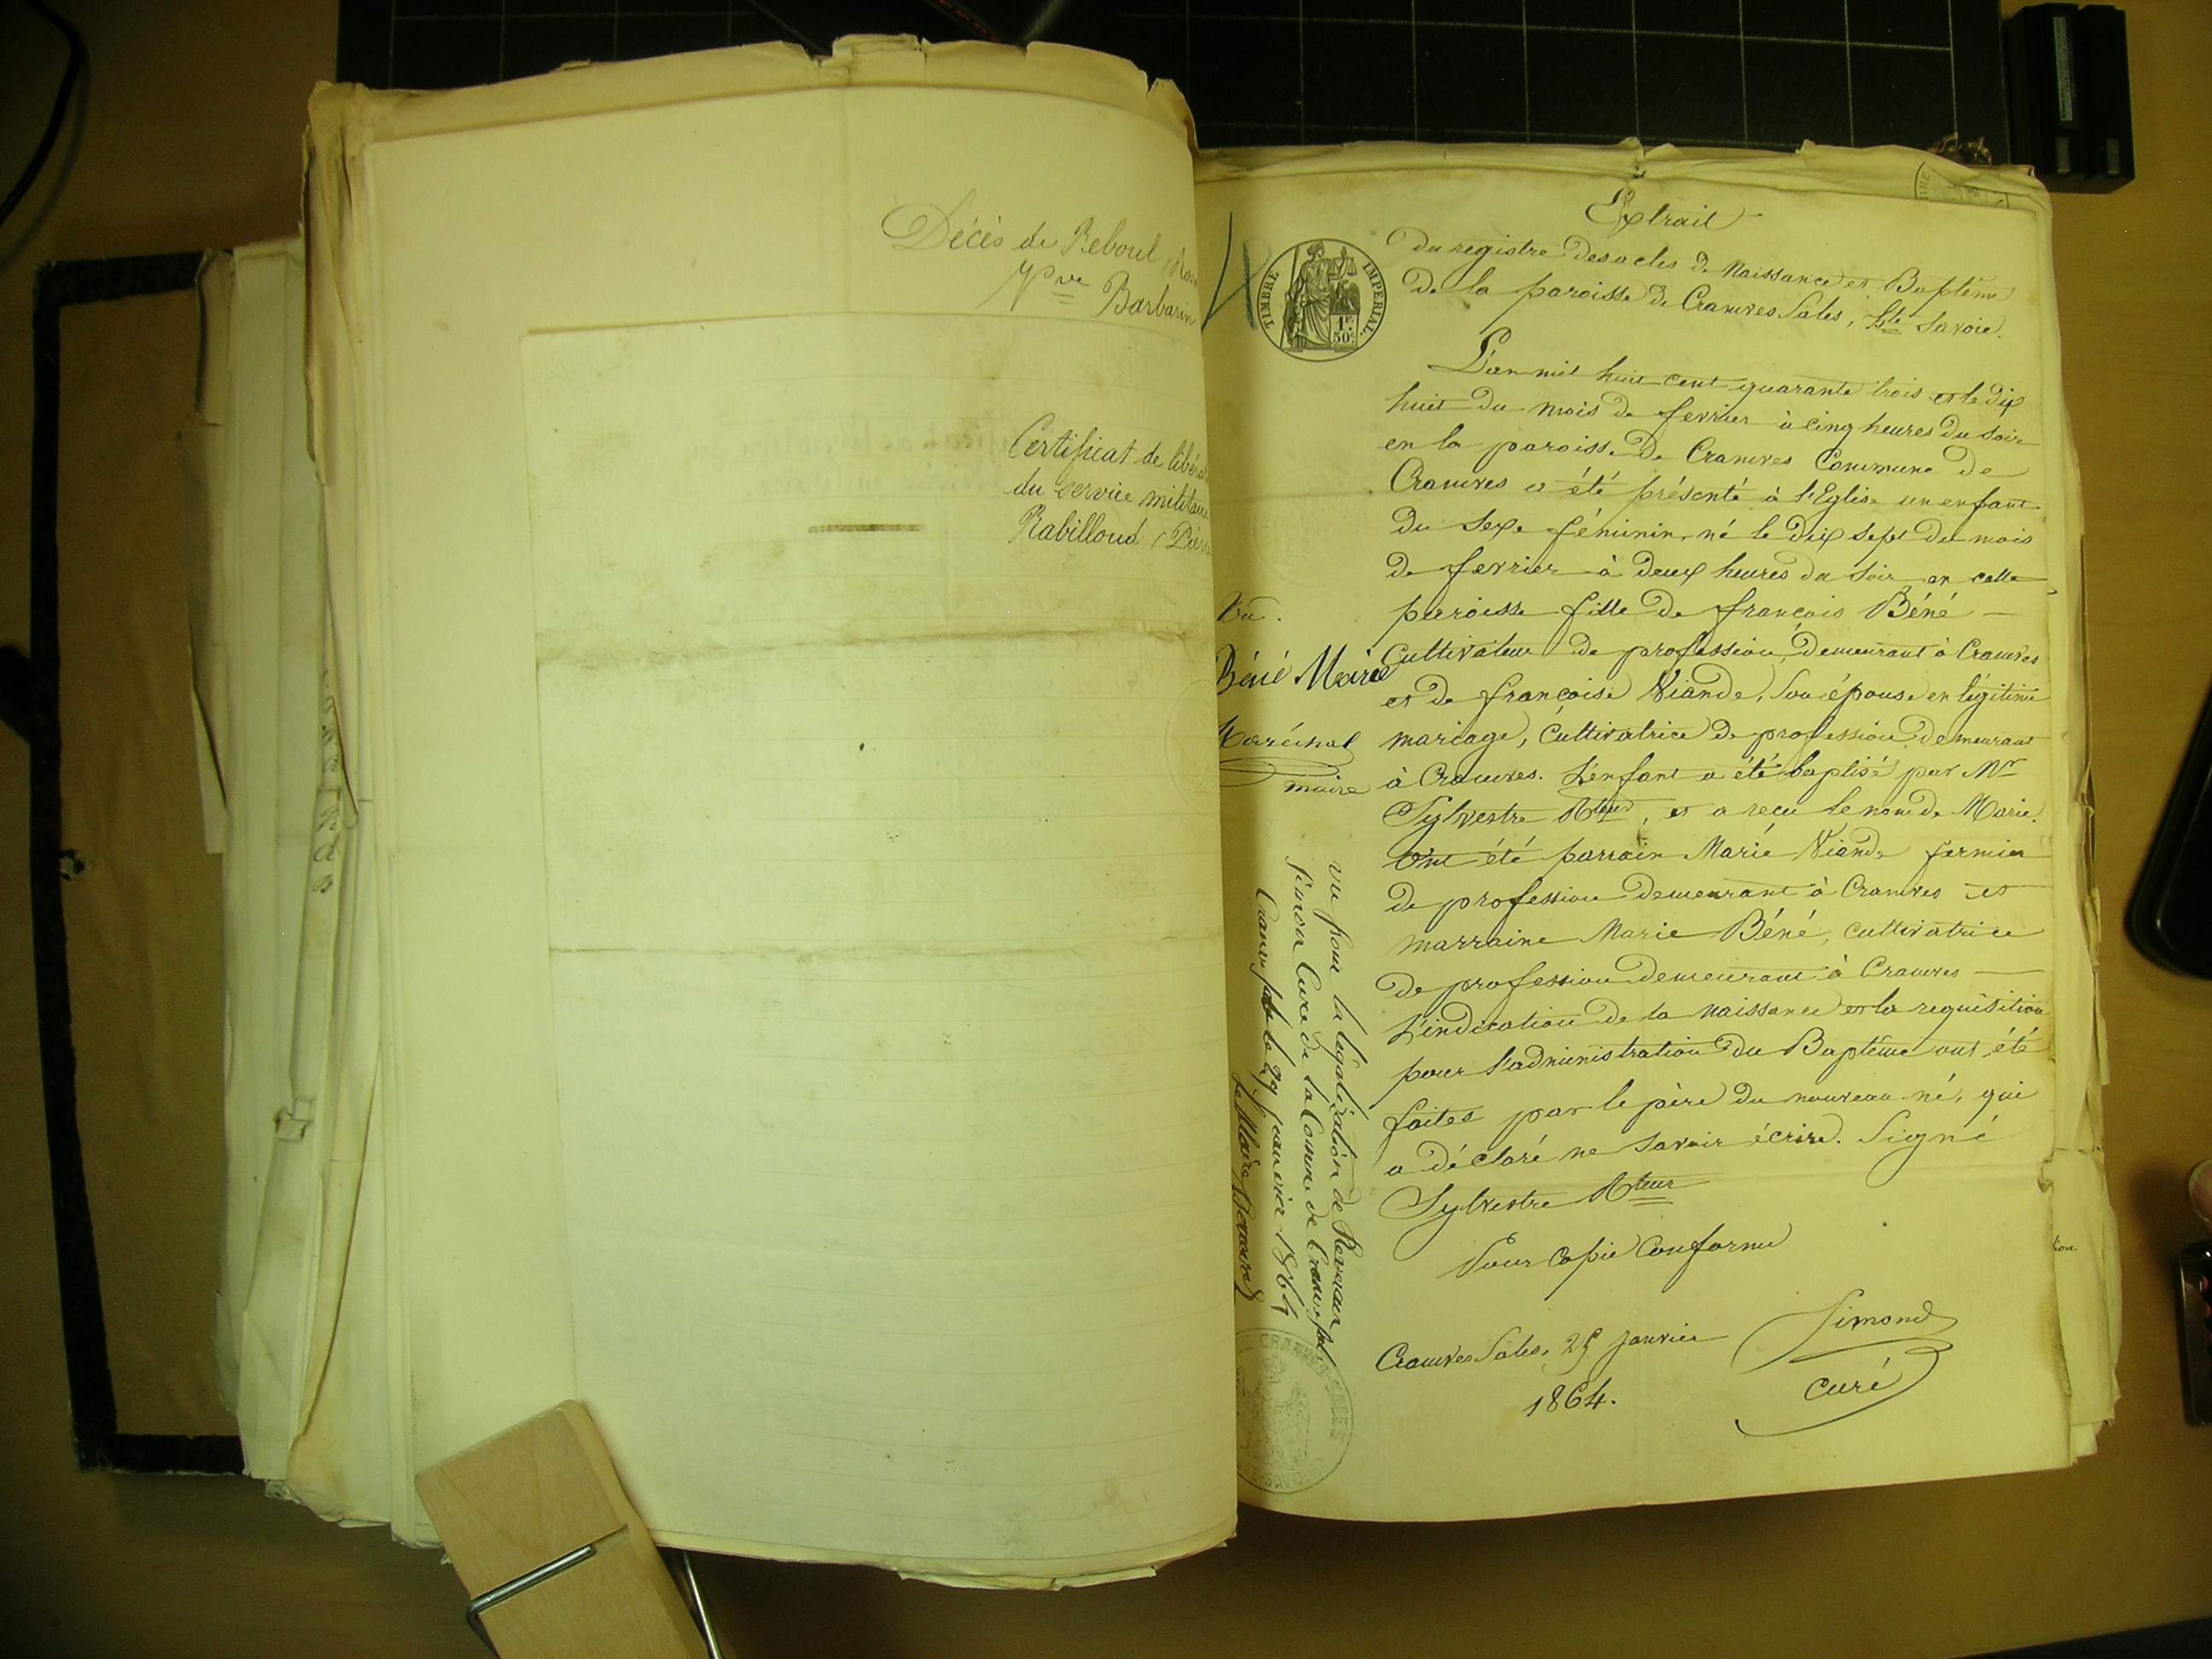 Décès de Reboul
Vve Barbarin
Certificat de libér
du service militaire
Rabilloud
Extrait
du registre des actes de Naissance et Baptême
De la paroisse de Cranves Sales, Hte Savoie.
TIMBRE IMPERIAL
1F
50c
L'an mil huit cent quarante trois et le dix
huit du mois de fevrier à cinq heures du soir
en la paroisse de Cranves Commune de
Cranves a été présenté à l'Eglise un enfant
du sexe féminin, né le dix sept du mois
de fevrier à deux heures du soir en cette
paroisse fille de françois Béné
Cultivateur de profession, demeurant à Cranves
et de françoise Viande, son épouse en légitime
mariage, Cultivatrice de profession demeurant
à Cranves. L'enfant a été baptisé par Mr
Sylvestre Rteur, et a reçu le nom de Marie.
Ont été parrain Marie Viande fermier
de profession demeurant à Cranves et
marraine Marie Béné, cultivatrice
de profession demeurant à Cranves
L'indication de la naissance et la requisition
pour l'administration du Baptême ont été
faites par le père du nouveau né, qui
a déclaré ne savoir écrire. Signé
Sylvestre Rteur
Pour Copie Conforme
Cranves Sales, 25 Janvier
1864.
Simond
curé
Vu.
Béné Marie
Maréchal
maire
Vu pour la légalisation de Reverant
Simon Curé de la Comune de Cranve sal
Cranve Sale le 29 jeanvier 1864
Le Maire